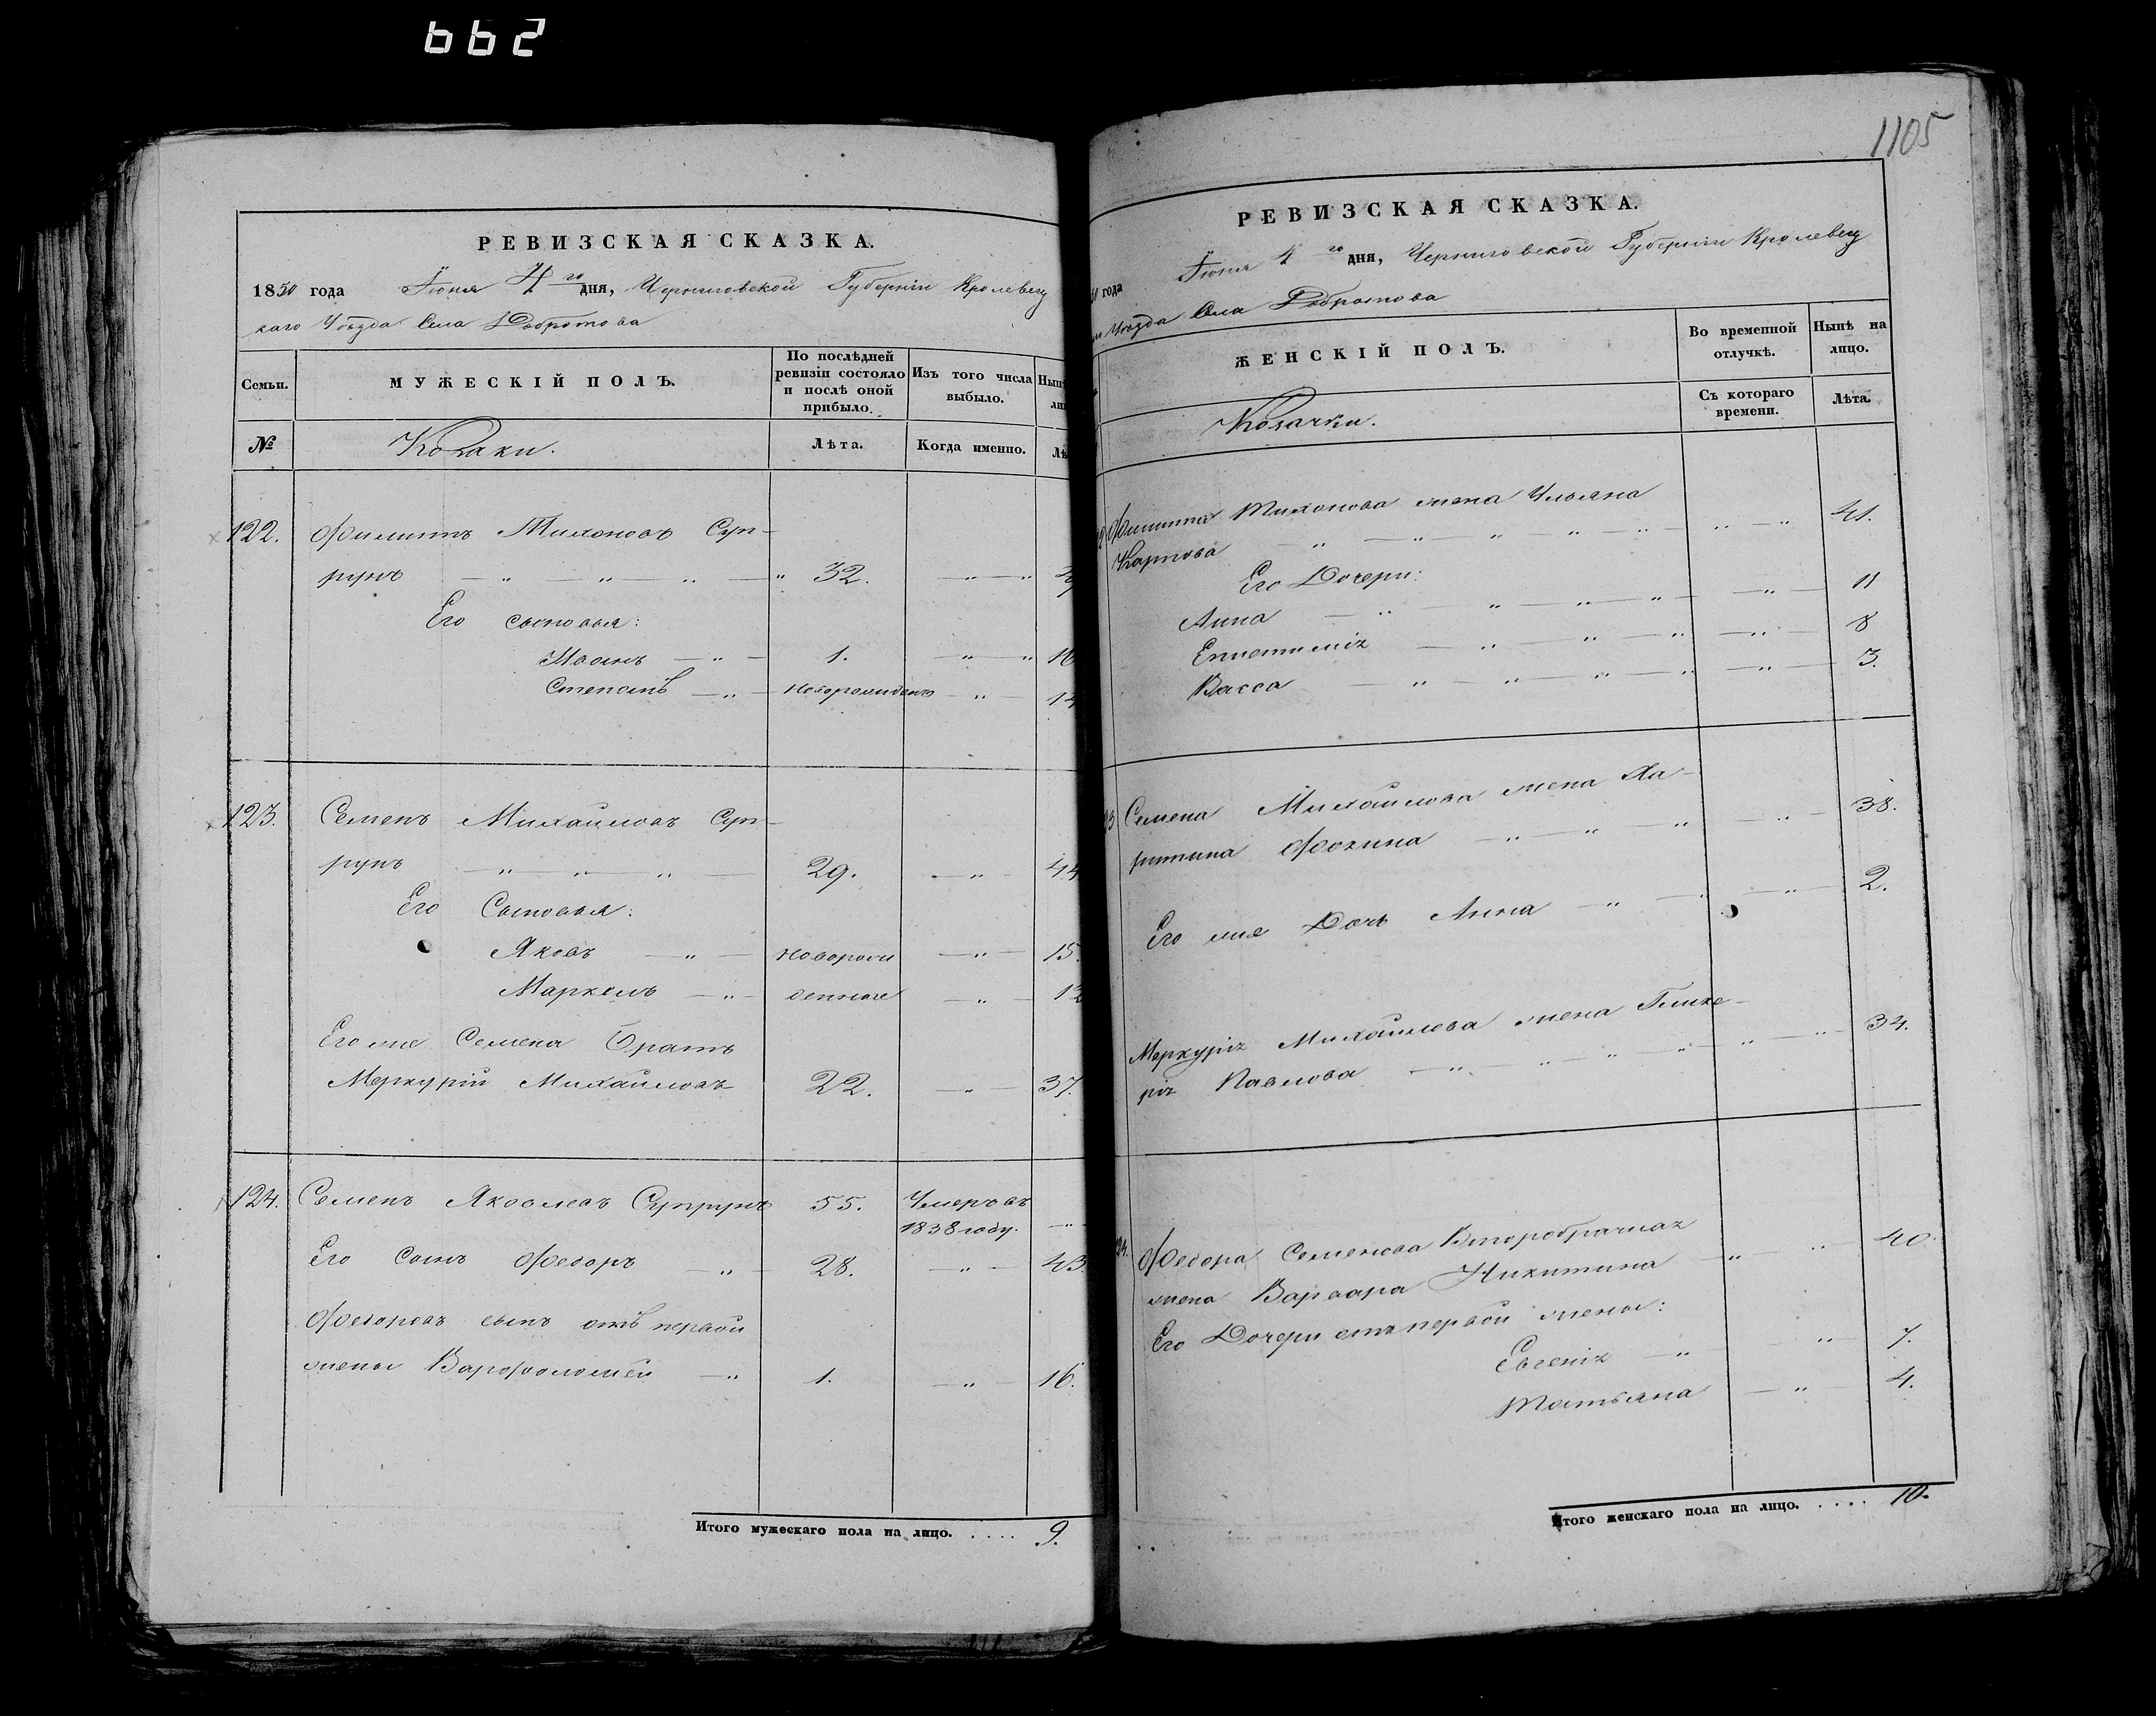 662
РЕВИЗСКАЯ СКАЗКА.
1850 года Іюня 4 го дня, Черниговской Губерніи Кролевец
каго Уѣзда Села Добротова
Семьи.
МУЖЕСКІЙ ПОЛЪ.
По послѣдней
ревизіи состояло
и послѣ оной
прибыло.
Изъ того числа
выбыло.
№
Козаки.
Лѣта.
Когда именно.
122. Филиппъ Тихоновъ Суп-
рунъ — „ — „ — „ — „ 32. — „ — „
Его сыновья:
Иванъ — „ — 1. — „ — „ 16
Степанъ — „ — новорожденъ — „ — 14
123. Семенъ Михайловъ Суп-
рунъ — „ — „ — „ — 29. — „ — 44
Его Сыновья:
Яковъ — „ — новорож — „ — 15.
Маркелъ — „ — денные — „ — 12
Его же Семена Братъ
Меркурій Михайловъ 22. — „ — 37.
124. Семенъ Яковлевъ Супрунъ 55. Умеръ въ
1838 году. — „ —
Его сынъ Федоръ — „ — 28. — „ — 43.
Федоровъ сынъ отъ первой
жены Варфоломей — „ 1. — „ — 16.
Итого мужескаго пола на лицо. . . . . 9.
1105
РЕВИЗСКАЯ СКАЗКА.
года Іюня 4 го дня, Черниговской Губерніи Кролевец
Уѣзда Села Добротова
ЖЕНСКІЙ ПОЛЪ.
Во временной
отлучкѣ.
Нынѣ на
лицо.
Козачки.
Съ котораго
времени.
Лѣта.
Филиппа Тихонова жена Ульяна
Карпова — „ — „ — „ — „ — „ — „ — „ 41.
Его Дочери:
Анна — „ — „ — „ — „ — „ — 11
Епистимія — „ — „ — „ — „ — 8
Васса — „ — „ — „ — „ — „ — 3.
Семена Михайлова жена Ха-
ритина Фокина — „ — „ — „ — „ — 38.
Его же Дочь Анна — „ — „ — „ — 2.
Меркурія Михайлова жена Глике-
рія Павлова — „ — „ — „ — „ — „ — „ — 34.
Федора Семенова Второбрачная
жена Варвара Никитина — „ „ — 40.
Его Дочери отъ первой жены:
Евгенія — „ — „ — 7.
Татьяна — „ — 4.
Итого женскаго пола на лицо. . . . . 10.